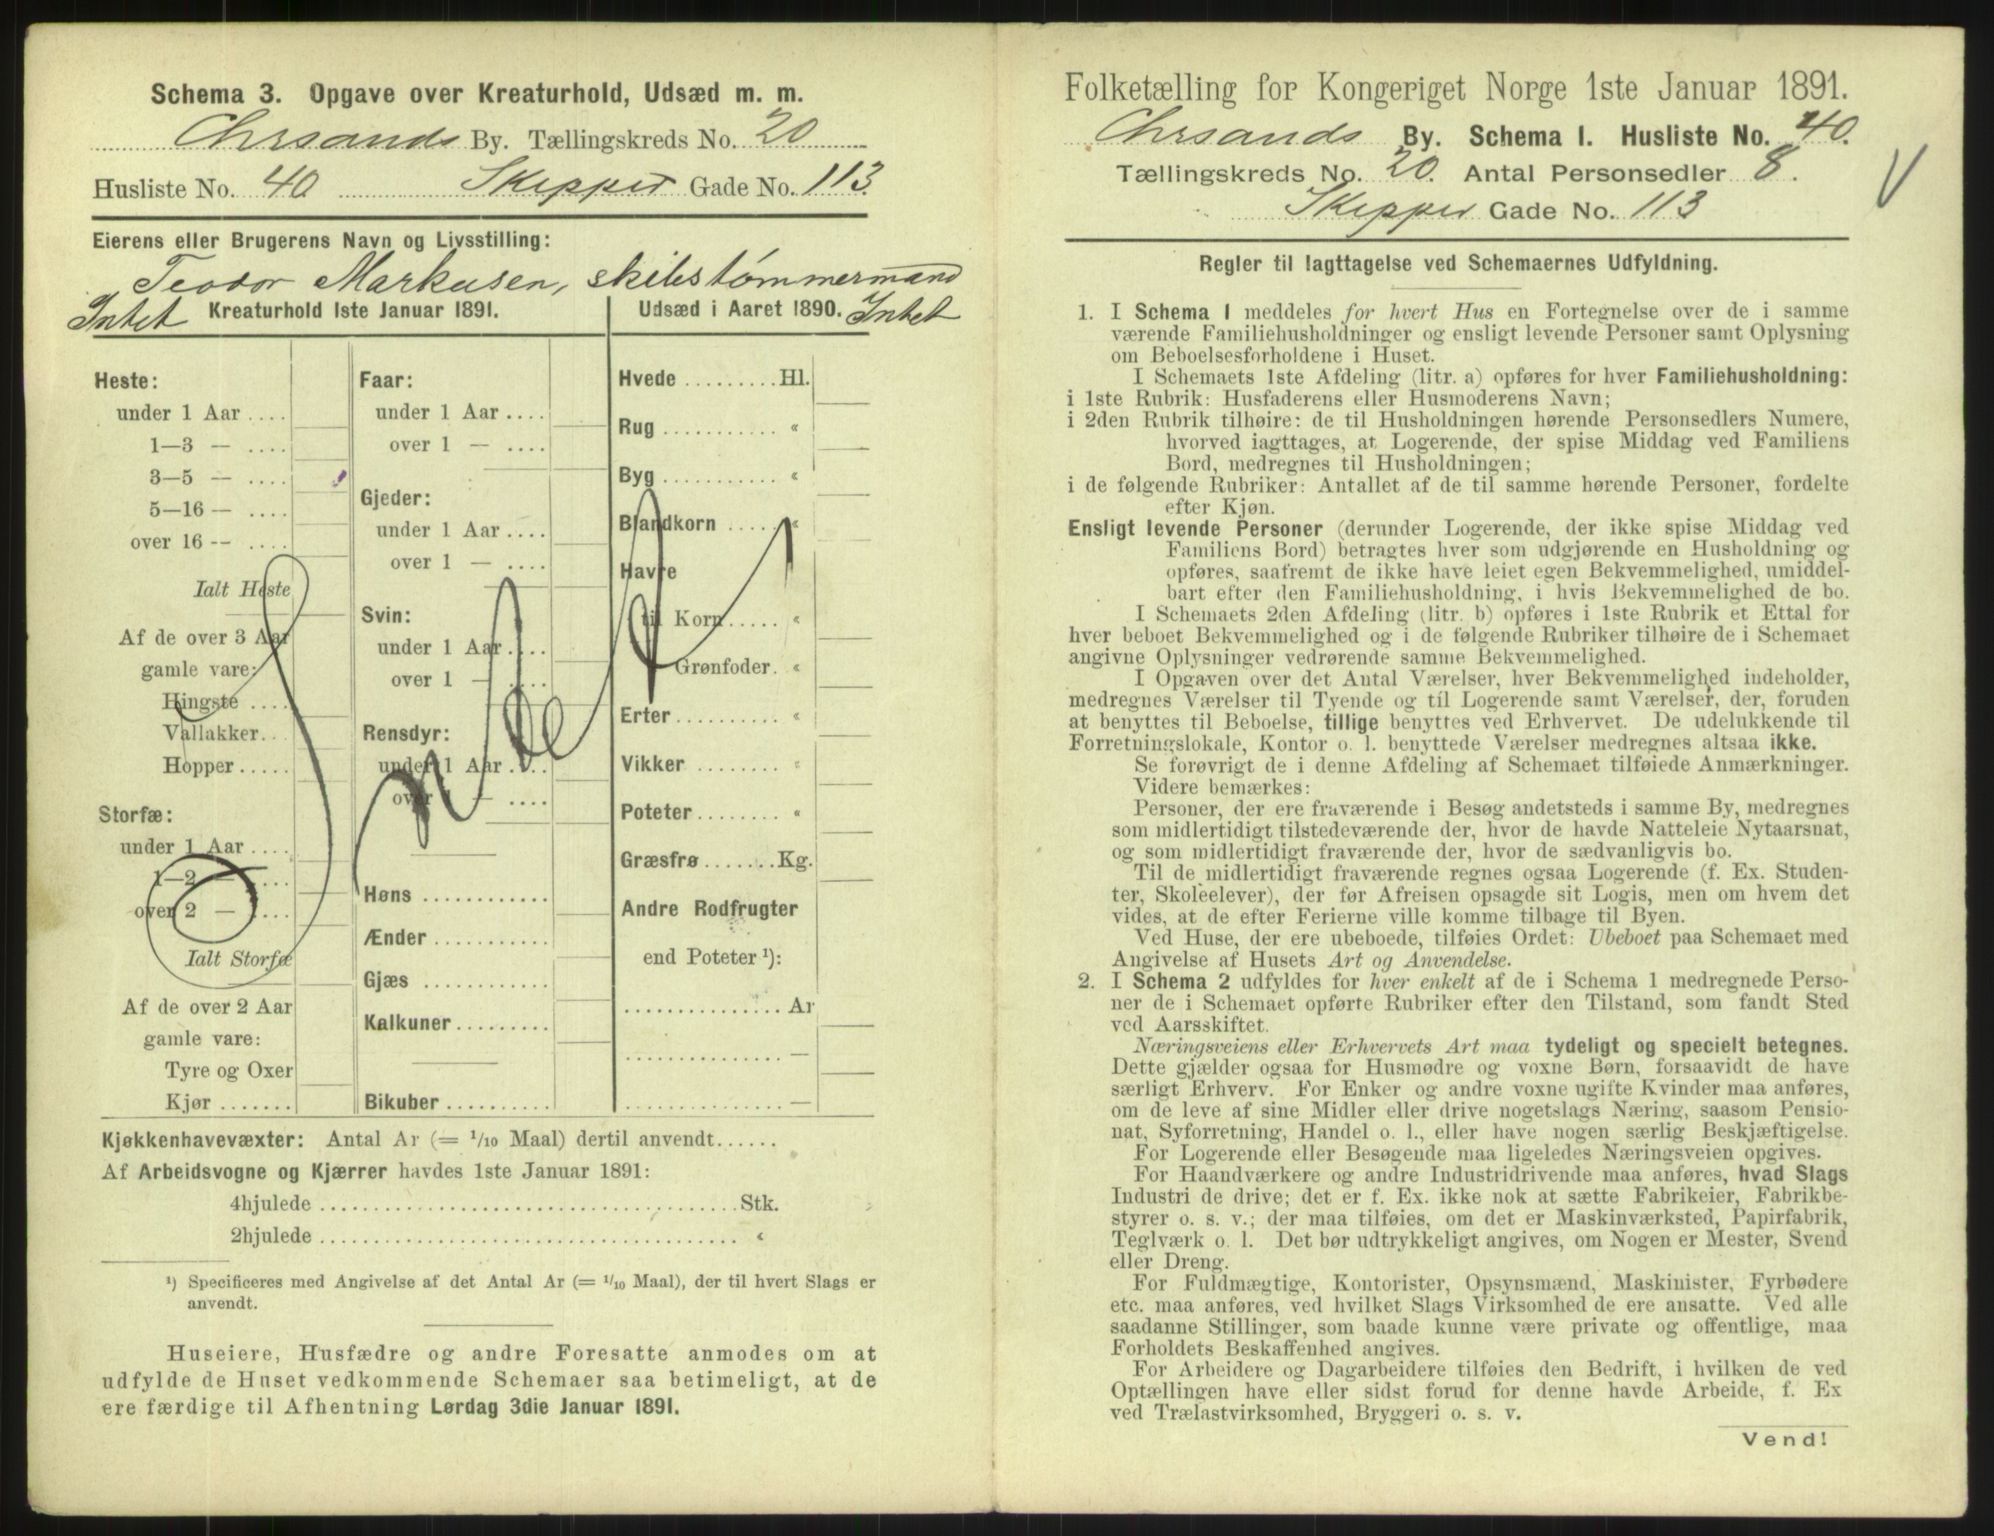 Schema 3. Opgave over Kreaturhold, Udsæd m. m.
Chrsands By. Tællingskreds No. 20
Husliste No. 40 Skipper Gade No. 113.
Eierens eller Brugerens Navn og Livsstilling:
Teodor Markusen, skibstømmermand
Intet Kreaturhold 1ste Januar 1891.
Udsæd i Aaret 1890. Intet
Heste:
under 1 Aar ....
1—3 — ....
3—5 — ....
5—16 — ....
over 16 — ....
Ialt Heste
Af de over 3 Aar
gamle vare:
Hingste ....
Vallakker...
Hopper.....
Storfæ:
under 1 Aar ....
1—2 — ....
over 2 — ....
Ialt Storfæ
Af de over 2 Aar
gamle vare:
Tyre og Oxer
Kjør .......
Faar:
under 1 Aar ....
over 1 — ....
Gjeder:
under 1 Aar ....
over 1 — ....
Svin:
under 1 Aar ....
over 1 — ....
Rensdyr:
under 1 Aar ....
over 1 — ....
Høns ............
Ænder ...........
Gjæs ............
Kalkuner.........
Bikuber ..........
Hvede .........Hl.
Rug ........... «
Byg ........... «
Blandkorn ...... «
Havre
til Korn..... «
Grønfoder. «
Erter.......... «
Vikker ........ «
Poteter........ «
Græsfrø .......Kg.
Andre Rodfrugter
end Poteter ¹):
............... Ar
............... —
............... —
Kjøkkenhavevæxter: Antal Ar (= 1/10 Maal) dertil anvendt......
Af Arbeidsvogne og Kjærrer havdes 1ste Januar 1891:
4hjulede ....................................Stk.
2hjulede .................................... «
¹) Specificeres med Angivelse af det Antal Ar (= 1/10 Maal), der til hvert Slags er
anvendt.
Huseiere, Husfædre og andre Foresatte anmodes om at
udfylde de Huset vedkommende Schemaer saa betimeligt, at de
ere færdige til Afhentning Lørdag 3die Januar 1891.
Folketælling for Kongeriget Norge 1ste Januar 1891.
Chrsands By. Schema I. Husliste No. 40.
Tællingskreds No. 20. Antal Personsedler 8.
Skipper Gade No. 113
Regler til Iagttagelse ved Schemaernes Udfyldning.
1. I Schema 1 meddeles for hvert Hus en Fortegnelse over de i samme
værende Familiehusholdninger og ensligt levende Personer samt Oplysning
om Beboelsesforholdene i Huset.
I Schemaets 1ste Afdeling (litr. a) opføres for hver Familiehusholdning:
i 1ste Rubrik: Husfaderens eller Husmoderens Navn;
i 2den Rubrik tilhøire: de til Husholdningen hørende Personsedlers Numere,
hvorved iagttages, at Logerende, der spise Middag ved Familiens
Bord, medregnes til Husholdningen;
i de følgende Rubriker: Antallet af de til samme hørende Personer, fordelte
efter Kjøn.
Ensligt levende Personer (derunder Logerende, der ikke spise Middag ved
Familiens Bord) betragtes hver som udgjørende en Husholdning og
opføres, saafremt de ikke have leiet egen Bekvemmelighed, umiddel-
bart efter den Familiehusholdning, i hvis Bekvemmelighed de bo.
I Schemaets 2den Afdeling (litr. b) opføres i 1ste Rubrik et Ettal for
hver beboet Bekvemmelighed og i de følgende Rubriker tilhøire de i Schemaet
angivne Oplysninger vedrørende samme Bekvemmelighed.
I Opgaven over det Antal Værelser, hver Bekvemmelighed indeholder,
medregnes Værelser til Tyende og til Logerende samt Værelser, der, foruden
at benyttes til Beboelse, tillige benyttes ved Erhvervet. De udelukkende til
Forretningslokale, Kontor o. l. benyttede Værelser medregnes altsaa ikke.
Se forøvrigt de i denne Afdeling af Schemaet tilføiede Anmærkninger.
Videre bemærkes:
Personer, der ere fraværende i Besøg andetsteds i samme By, medregnes
som midlertidigt tilstedeværende der, hvor de havde Natteleie Nytaarsnat,
og som midlertidigt fraværende der, hvor de sædvanligvis bo.
Til de midlertidigt fraværende regnes ogsaa Logerende (f. Ex. Studen-
ter, Skoleelever), der før Afreisen opsagde sit Logis, men om hvem det
vides, at de efter Ferierne ville komme tilbage til Byen.
Ved Huse, der ere ubeboede, tilføies Ordet: Ubeboet paa Schemaet med
Angivelse af Husets Art og Anvendelse.
2. I Schema 2 udfyldes for hver enkelt af de i Schema 1 medregnede Perso-
ner de i Schemaet opførte Rubriker efter den Tilstand, som fandt Sted
ved Aarsskiftet.
Næringsveiens eller Erhvervets Art maa tydeligt og specielt betegnes.
Dette gjælder ogsaa for Husmødre og voxne Børn, forsaavidt de have
særligt Erhverv. For Enker og andre voxne ugifte Kvinder maa anføres,
om de leve af sine Midler eller drive nogetslags Næring, saasom Pensio-
nat, Syforretning, Handel o. l., eller have nogen særlig Beskjæftigelse.
For Logerende eller Besøgende maa ligeledes Næringsveien opgives.
For Haandværkere og andre Industridrivende maa anføres, hvad Slags
Industri de drive; det er f. Ex. ikke nok at sætte Fabrikeier, Fabrikbe-
styrer o. s. v.; der maa tilføies, om det er Maskinværksted, Papirfabrik,
Teglværk o. l. Det bør udtrykkeligt angives, om Nogen er Mester, Svend
eller Dreng.
For Fuldmægtige, Kontorister, Opsynsmænd, Maskinister, Fyrbødere
etc. maa anføres, ved hvilket Slags Virksomhed de ere ansatte. Ved alle
saadanne Stillinger, som baade kunne være private og offentlige, maa
Forholdets Beskaffenhed angives.
For Arbeidere og Dagarbeidere tilføies den Bedrift, i hvilken de ved
Optællingen have eller sidst forud for denne havde Arbeide, f. Ex
ved Trælastvirksomhed, Bryggeri o. s. v.
Vend!